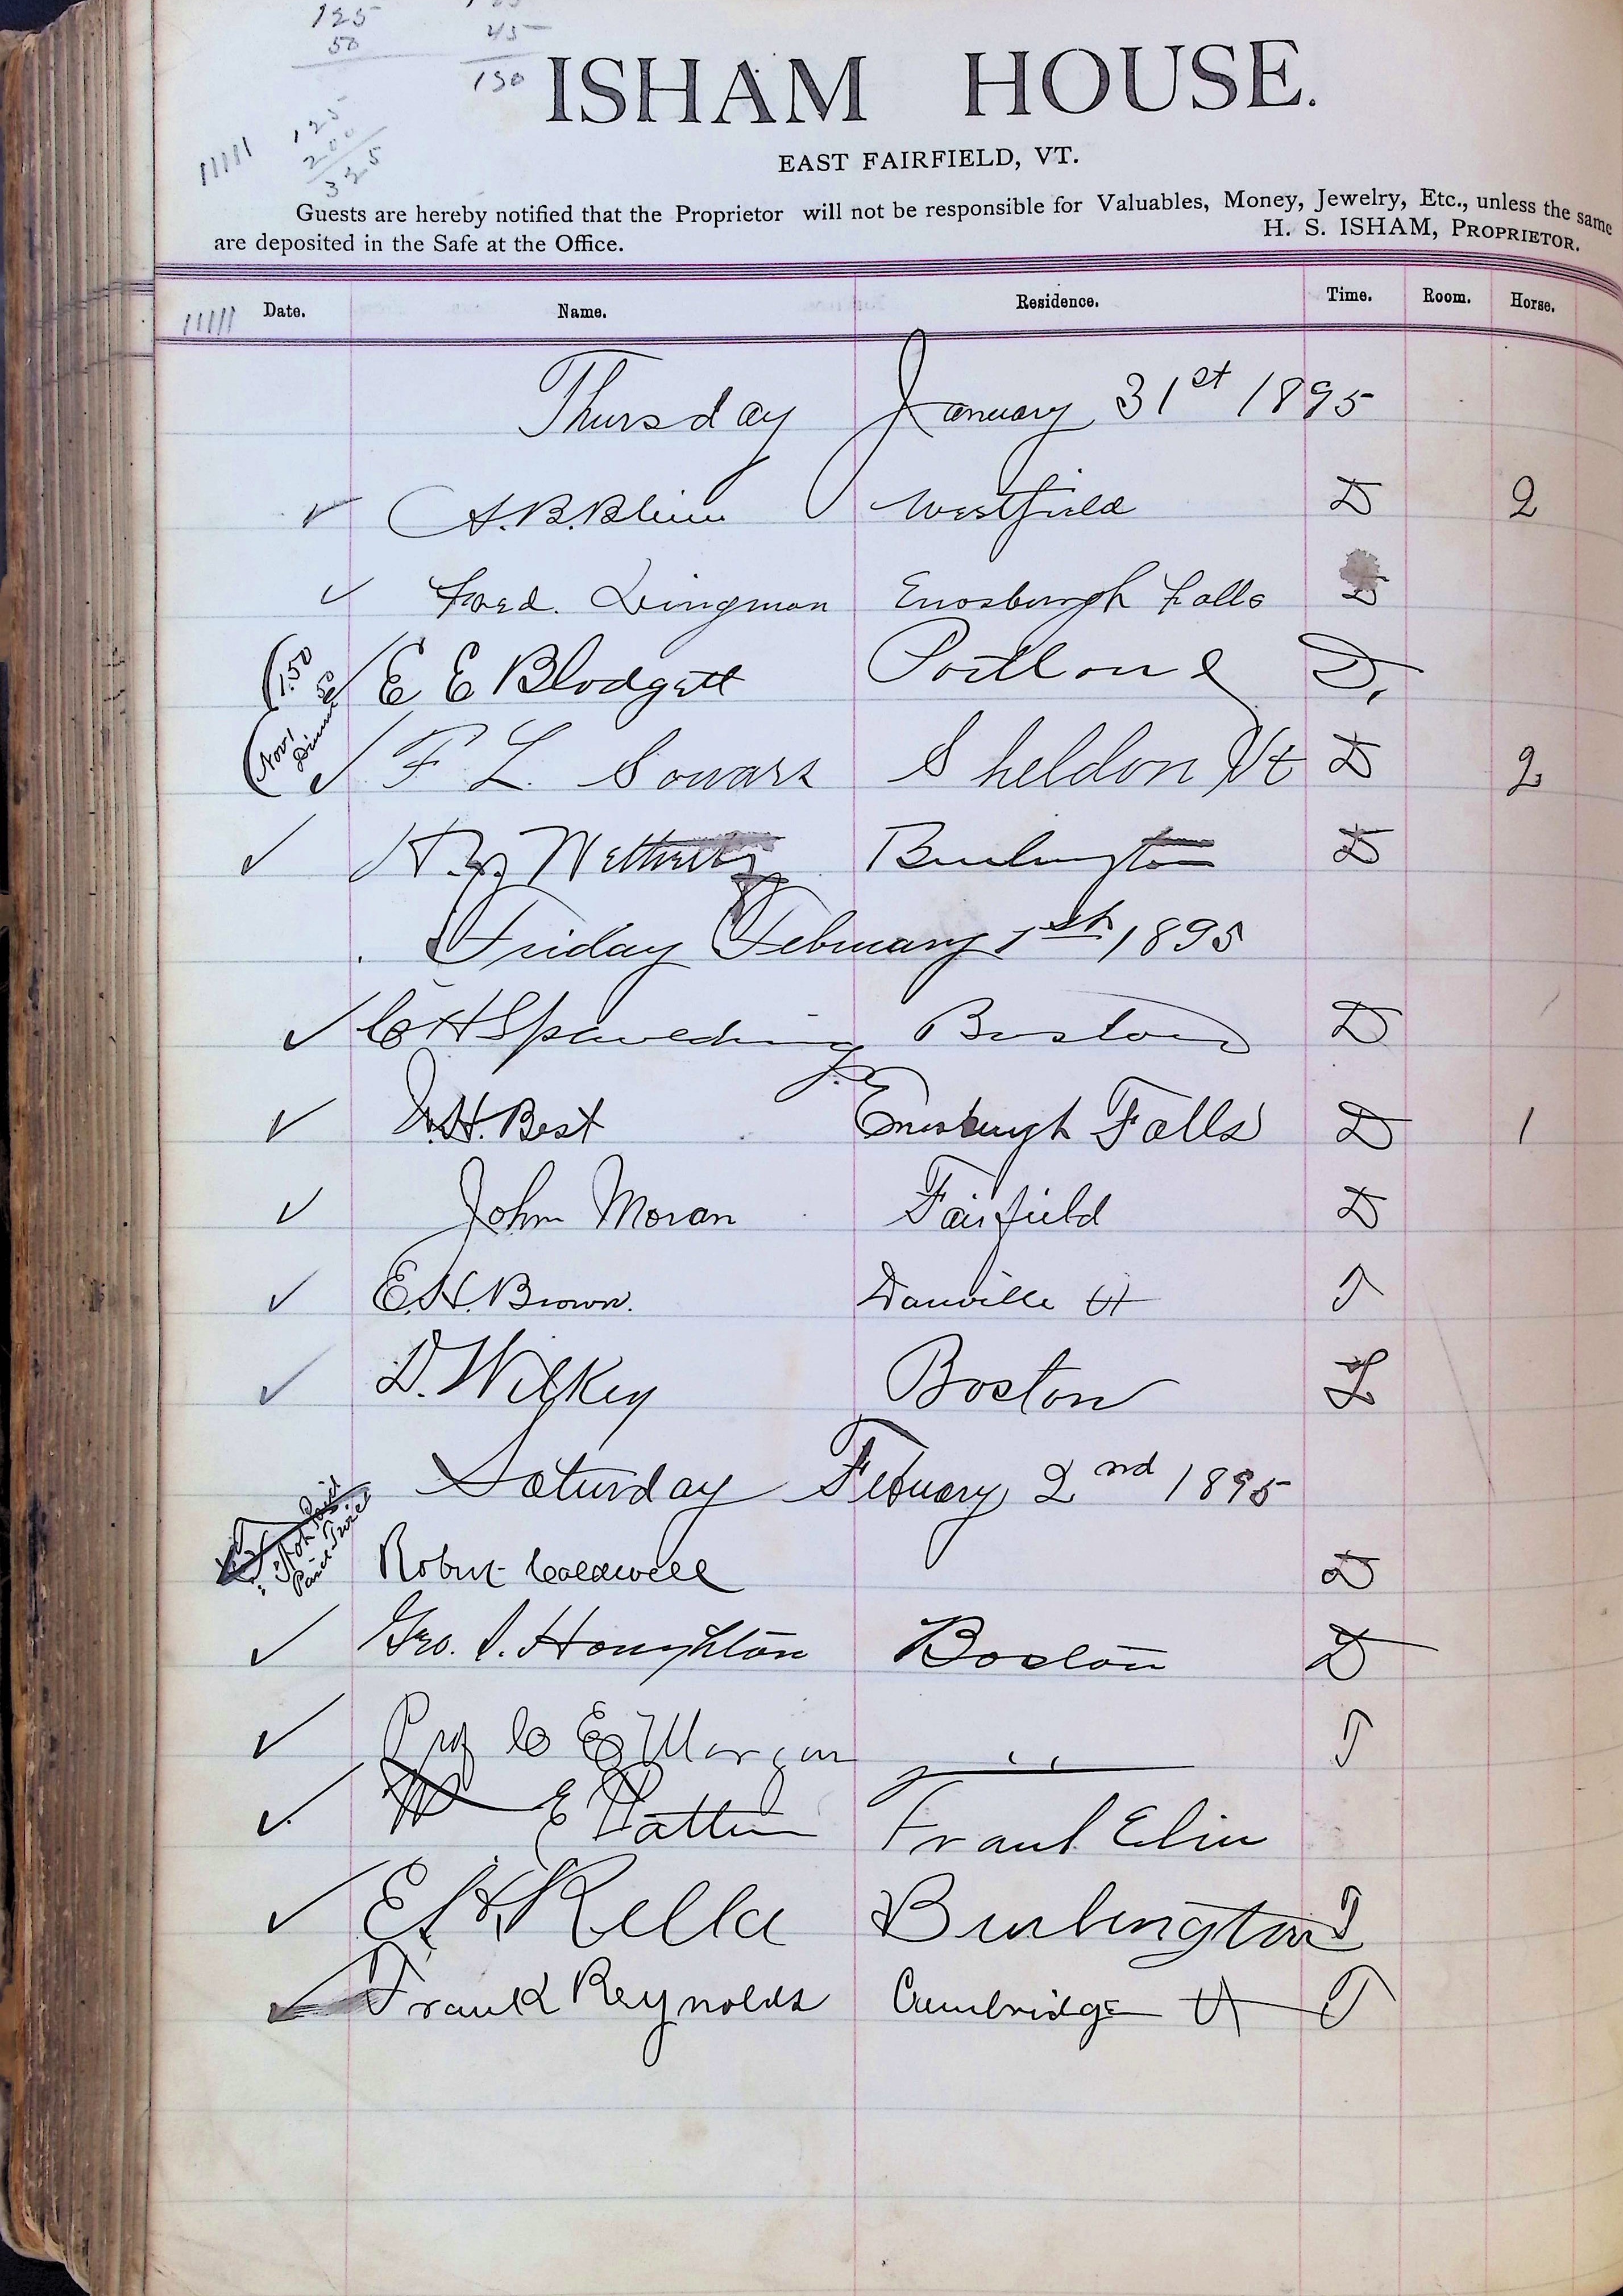 125
50
45
130
125
200
325
ISHAM HOUSE.
EAST FAIRFIELD, VT.
Guests are hereby notified that the Proprietor will not be responsible for Valuables, Money, Jewelry, Etc., unless the same
are deposited in the Safe at the Office. H. S. ISHAM, PROPRIETOR.
Date. Name. Residence. Time. Room. Horse.
Thursday January 31st 1895
A.B. Westfield D 2
Fred. Dingman Enosburgh Falls D
(1.50 E E Blodgett Portland D.
(Nov 1 Dinner 50 F L Sowars Sheldon Vt D 2
Burlington D
Friday February 1st 1895
C H Spaulding Boston D
H. Best Enosburgh Falls D 1
John Moran Fairfield D
E.H. Brown. Danville Vt T
D. Wilkey Boston L
Saturday Febuary 2nd 1895
Not Paid
Paid Twice
Robert Caldwell D
Geo. S. Houghton Boston D
Prof C E Morgan " T
E Patten
E H Burlington T
Frank Reynolds Cambridge Vt T